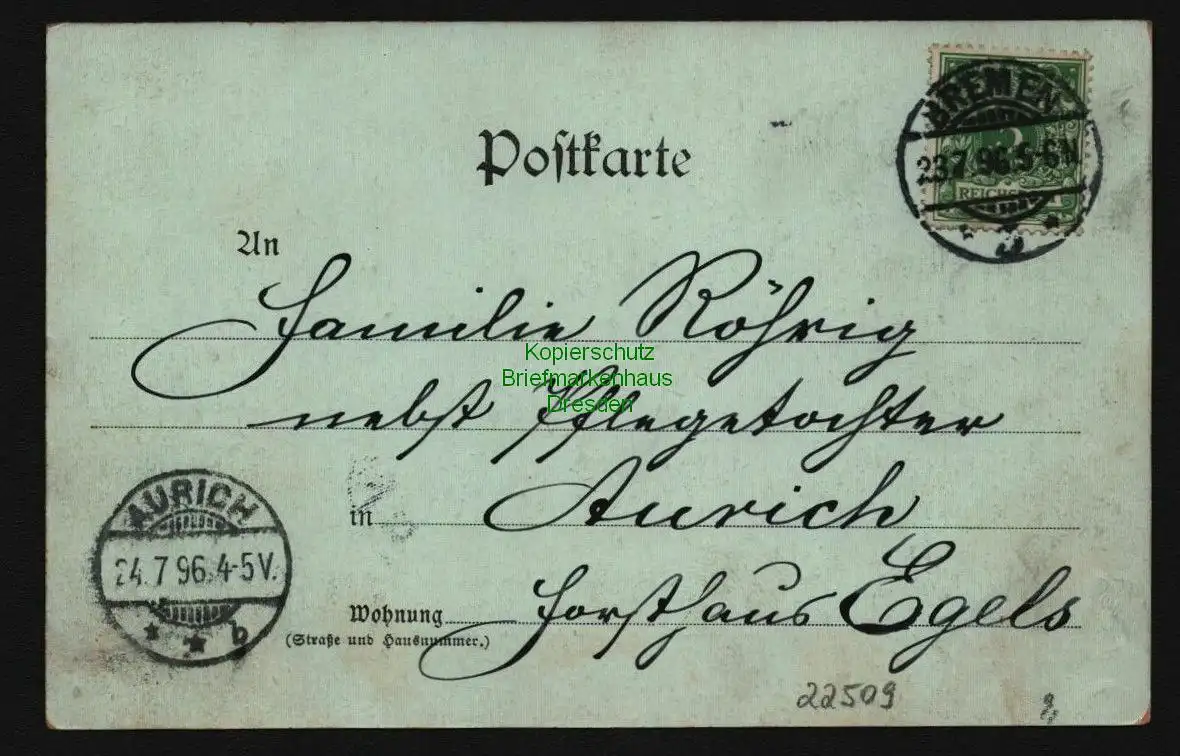 Postkarte
BREMEN
23.7.96.5-6N.
REICHSPOST
An
Familie Röhrig
Kopierschutz
Briefmarkenhaus
Dresden
nebst Pflegetochter
in Aurich
AURICH
24.7.96.4-5V.
b
Wohnung Forsthaus Egels
(Straße und Hausnummer.)
22509